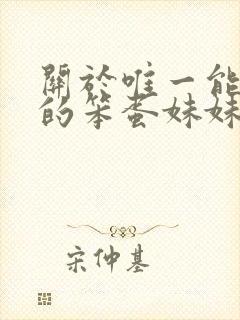 關於唯一能
的笨蛋妹妹
宋仲基